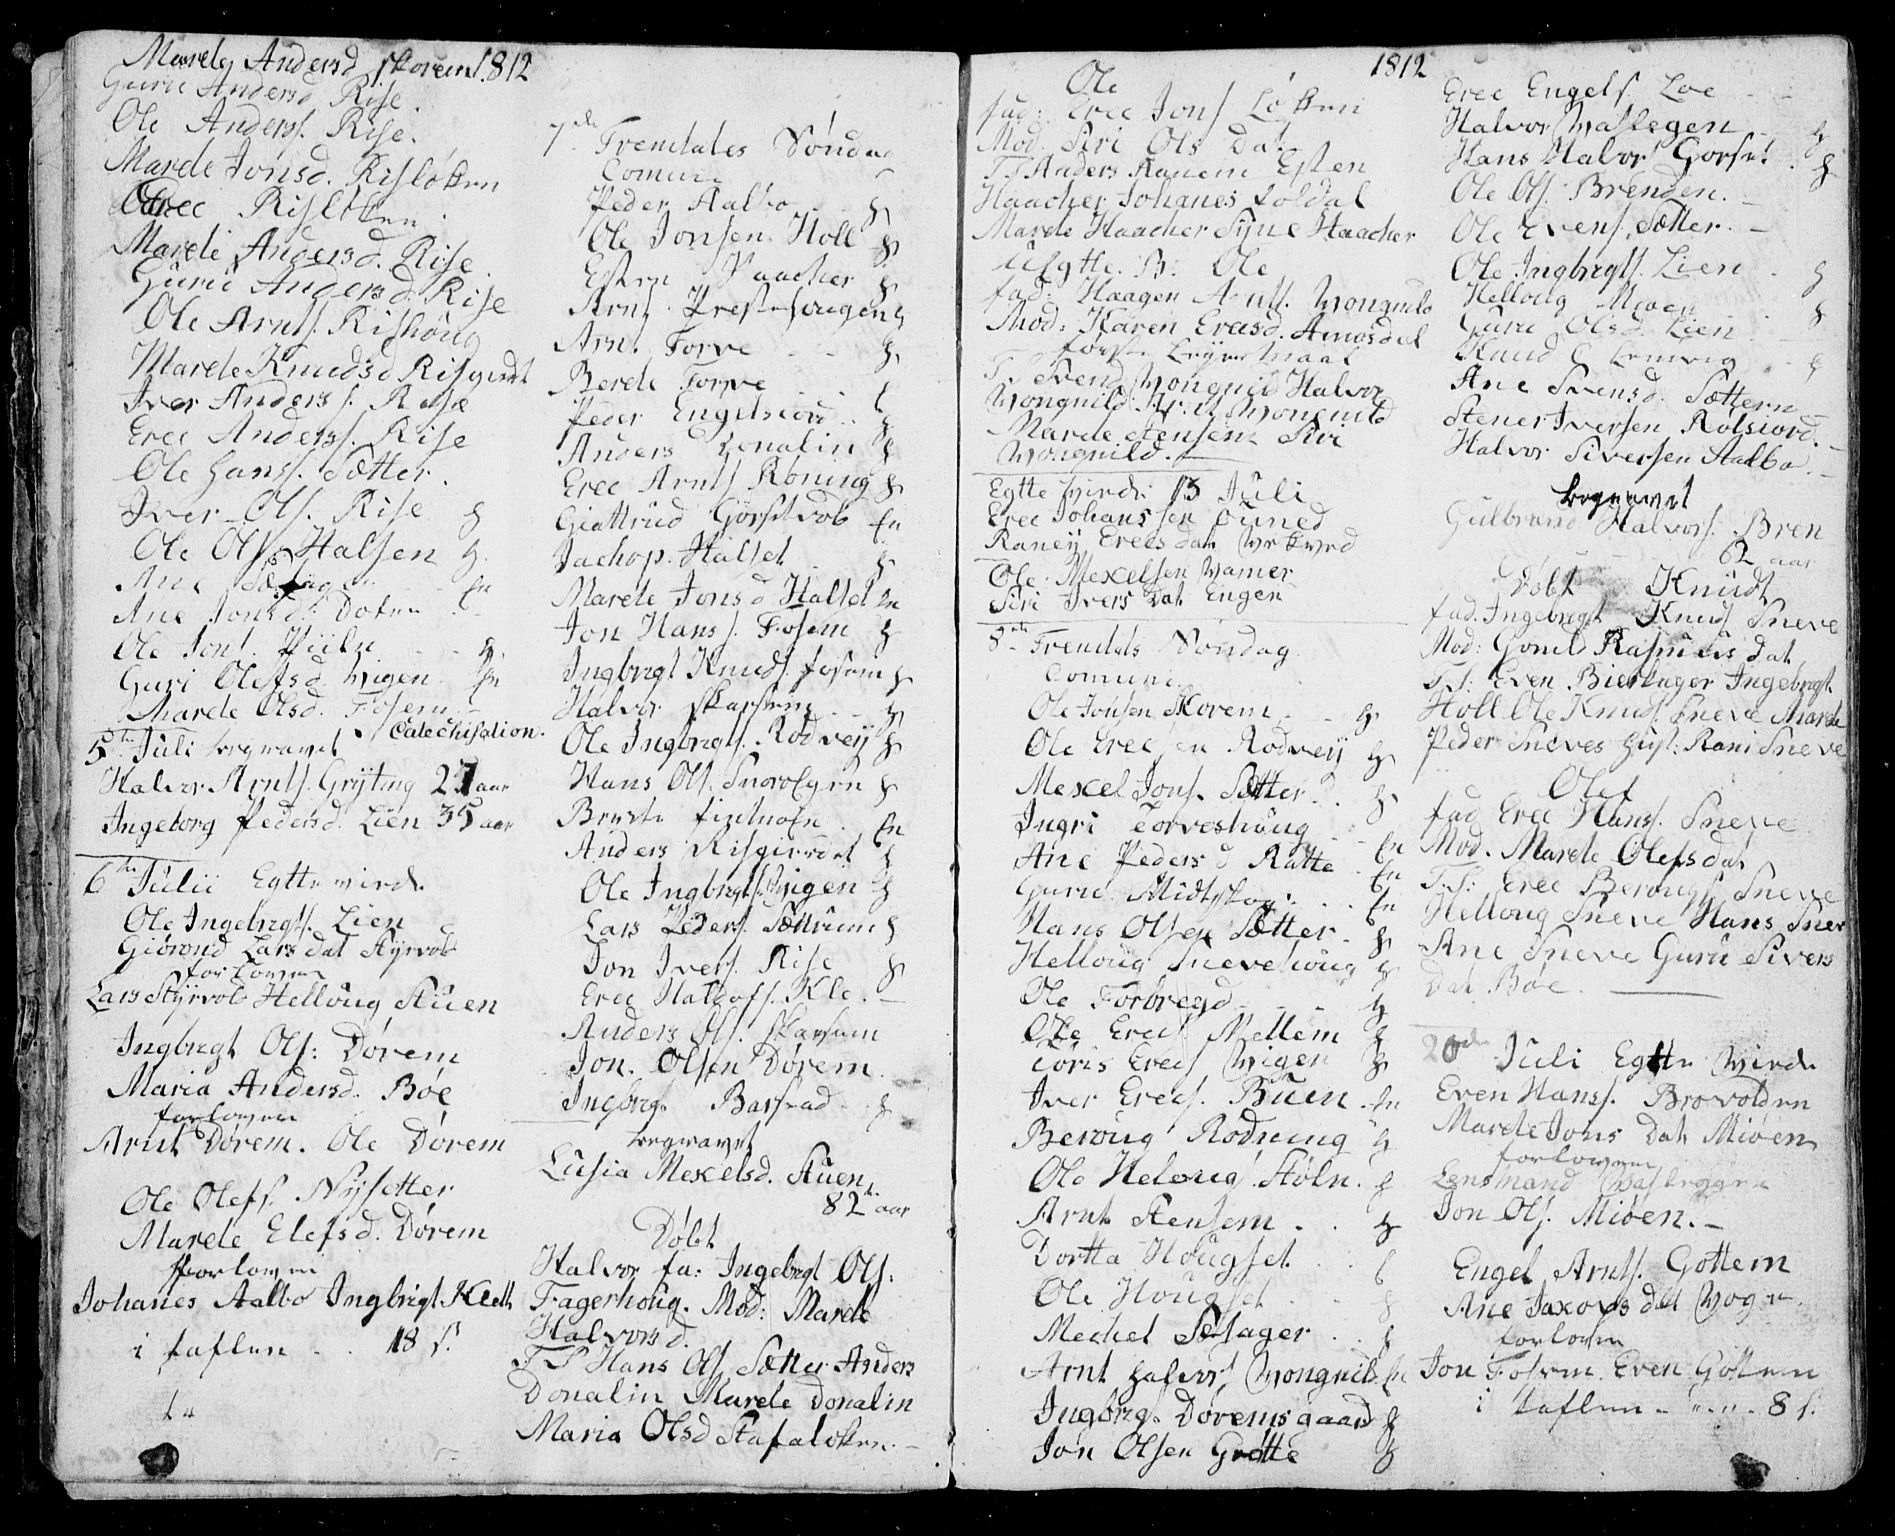 Marely Andersd Skorem 1812
Guru Andersd Rise.
Ole Anderss. Rise.
Marele Jonsd. Risløken
Erec Risløken.
Mareli Andersd. Rise.
Guru Andersd. Rise
Ole Arnts. Rishoug
Marele Knudsd Risgierdt
Iver Anderss. Rise
Erec Anderss. Rise
Ole Hanss. Sætter.
Iver Ols. Rise
Ole Ols. Halsen
Ane
Ane Jonsd.
Ole Jons.
Guri Olefsd. Wigen
Marele Olsd. Fosem
Catechisation.
5te Juli begravet
Halvor Arnts. Gryting 27 aar
Ingeborg Pedersd. Lien 35 aar
6te Julii Egtte virde
Ole Ingebrigts. Lien
Giørond Lars dat Styrvold
forlover
Lars Styrvold Helloug Stuen
Ingbrigt Ols: Dørem
Maria Andersd. Bøe
forlover
Arnt Dørem. Ole Dørem
Ole Olefs. Nysetter
Marele Elefsd. Dørem
forlover
Johanes Aalbo Ingbrigt Kleth
i taflen . . 18 s.
7de Tremtates Søndag
Comuni
Peder Aalbo
Ole Jonsen Holl
Esten Haacher
Arnt Prestehougen
Arnt Torve
Berele Torve
Peder Engelsiord
Anders Donalin
Erec Arnts Roning
Giattrud Gørsetvold
Jachop Halset
Marele Jonsd Halset
Jon Hanss. Fosem
Ingbrigt Knuds. fosem
Halvor Skarsem
Ole Ingbrigts. Rodvey
Hans Ols. Snovolgen
Anders Risgierdet
Ole Ingbrigts. Wigen
Lars Peders. Sættrum
Jon Ivers. Rise
Erec Haldofs. Kle.
Anders Ols. Skarsem
Jon. Olsen Dørem
Ingbrig. Barstad
begravet
Lusia Mexelsd. Stuen
82 aar
Døbt
Halvor fa: Ingebrgt Ols.
Fagerhoug. Mod: Marele
Halvorsd.
T S Hans Ols. Sætter Anders
Donalin Marele Donalin
Maria Olsd Stafaløken.
1812
Ole
fad: Erec Jons Løkken
Mod. Siri Ols Dat
T S Anders Ranem Esten
Haacher Johanes foldal
Marele Haacher Syne Haacher
uegtte. B: Ole
fad: Haagen Arnts. Wongnild
Mod: Karen Erecsd. Amosdal
første Leyermaal
T S Svend Wongnild Halvor
Wongnild Wongnild
Marele Stensem Siri
Wongnild.
Egtte virde 13 Juli
Erec Johanssen
Raney Erecs dat
Ole Mexelsen Wamer
Siri Ivers Dat Engen
8de Tremtates Søndag
Comuni
Ole Jonsen Skorem
Ole Erecsen Rodvey
Mexel Jons. Sætter
Ingri Torveshoug
Ane Pedersd Ratte
Guru Midtskog
Hans Olsen Sætter
Helloug Snevehoug
Ole Forbregd
Ole Erecs Mellem
Toris Erecs Wigen
Iver Erecs. Buen
Beroug Rodning
Ole Heloug Støln.
Arnt Stensem
Dortta Hougset
Ole Hougset
Mechel Sætager
Arnt Halvors Wongnild
Ingbrig. Døremsgaard
Jon Olsen Grøtte
Erec Engels Loe
Halvor Waslegen
Hans Halvors Gorset
Ole Ols. Brenden.
Ole Evens. Sætter.
Ole Ingbrigts. Lien
Helloug Miøen
Guru Olsd. Lien
Knud
Ane Svensd. Sættern
Stener Iversen Rotsiord.
Halvor Siversen Aalbo.
begravet
Gulbrand Halvors. Bren
62 aar
Døbt Knudt
fad. Ingebrigt Knuds Sneve
Mod: Gonild Rasmus dat
T.S: Even Bierkager Ingebrigt
Holl Ole Knuds. Sneve Marele
Peder Sneves hust: Rani Sneve
Olef
fad Erec Hans. Sneve
Mod. Marele Olefsdat
T.S: Erec Berougs Sneve
Helloug Sneve Hans Snev
Ane Sneve Guru Sivers
Dat Bøe.
20de Juli Egtte Virde
Even Hanss. Brovolden
Marele Jons Dat Miøen
forlover
Lensmand Waslegge
Jon Ols. Miøen.
Engel Arnts. Gottem
Ane Jaxops dat Wog
forlover
Jon Fosem Even Gottem
i taflen 8 s.